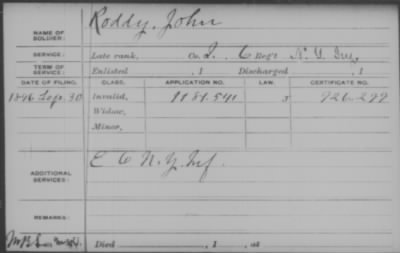 NAME OF SOLDIER: Roddy, John
SERVICE: Late rank, Co. I. 6 Reg't N.Y. Inf,
TERM OF SERVICE: Enlisted , 1 Discharged , 1
DATE OF FILING. CLASS. APPLICATION NO. LAW. CERTIFICATE NO.
1896 Sep. 30 Invalid, 1181.541 926.299
Widow,
Minor,
ADDITIONAL SERVICES: E 6 N.Y. Inf.
REMARKS:
Died , 1 , at